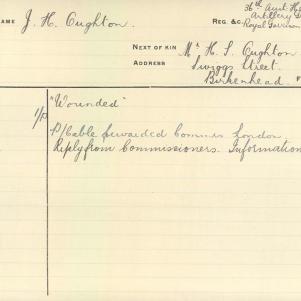 36th Aust. He
NAME J. H. Oughton REG. &C. Artillery G
Royal Garrison
NEXT OF KIN Mr H. S. Oughton
ADDRESS Street
Birkenhead.
"Wounded"
P/Cable forwarded Commrs London
Reply from Commissioners. Information